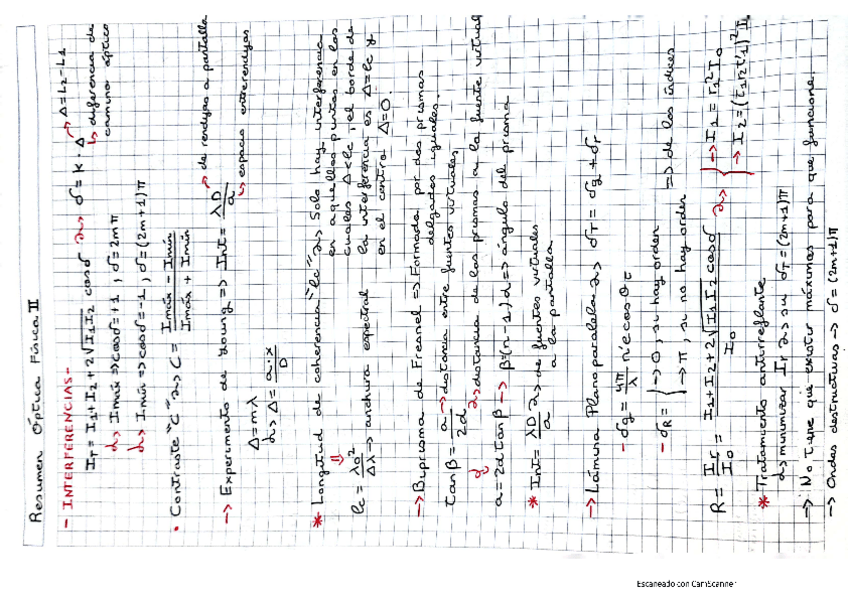 Resumen Óptica Física II
- INTERFERENCIAS -
I_T = I₁ + I₂ + 2√(I₁I₂) cosδ ↝ δ = K · Δ → Δ = L₂ - L₁
↳ diferencia de camino óptico
↳ Imáx ⇒ cosδ = +1, δ = 2mπ
↳ Imín ⇒ cosδ = -1, δ = (2m+1)π
• Contraste "C" ↝ C = (Imáx - Imín) / (Imáx + Imín)
→ Experimento de Young ⇒ Int = λD/a → de rendijas a pantalla
↳ espacio entre rendijas
Δ = mλ
↳ Δ = a·x/D
* Longitud de coherencia "lc" ↝ Solo hay interferencia
en aquellos puntos en los
cuales Δ < lc, el borde de
la interferencia es Δ = lc y
en el centro Δ = 0.
⇓
lc = λ₀²/Δλ → anchura espectral
→ Biprisma de Fresnel ⇒ Formada por dos prismas
delgados iguales.
tan β = a/2d → distancia entre fuentes virtuales
↳ distancia de los prismas a la fuente virtual
a = 2d tan β → β = (n-1)α ⇒ ángulo del prisma
* Int = λD/a ↝ de fuentes virtuales
a la pantalla
→ Lámina Plano paralela ↝ δT = δg + δr
- δg = 4π/λ n'e cos θτ
- δR = { → 0, si hay orden
→ π, si no hay orden ⇒ de los índices
R = Ir/I₀ = (I₁ + I₂ + 2√(I₁I₂) cosδ)/I₀ ↝ { → I₁ = r₁² I₀
→ I₂ = (t₁r₂t'₁)² I₀
* Tratamiento antirreflante
↳ minimizar Ir ↝ su δT = (2m+1)π
→ No tiene que existir máximos para que funcione
→ Ondas destructivas → δ = (2m+1)π
Escaneado con CamScanner